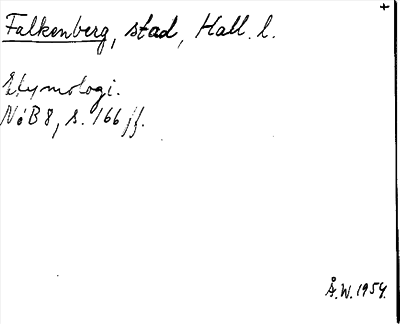 +
Falkenberg, stad, Hall. l.
Etymologi.
NoB 8, s. 166 ff.
Å.W. 1954.